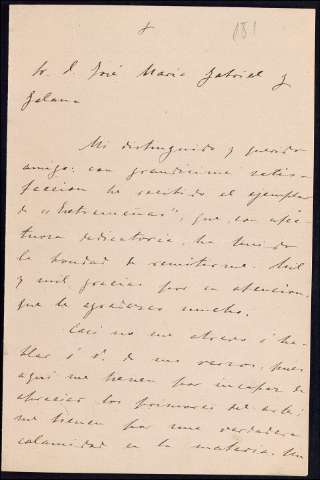 181
Sr. D. José María Gabriel y
Galan
Mi distinguido y querido
amigo: con grandísima satis-
faccion he recibido el ejemplar
de "Extremeñas", que, con afec-
tuosa dedicatoria, ha tenido
la bondad de remitirme. Mil
y mil gracias por su atencion,
que le agradezco mucho.
Casi no me atrevo á ha-
blar á V. de sus versos, pues
aquí me tienen por incapaz de
apreciar los primores del arte;
me tienen por una verdadera
calamidad en la materia. Un